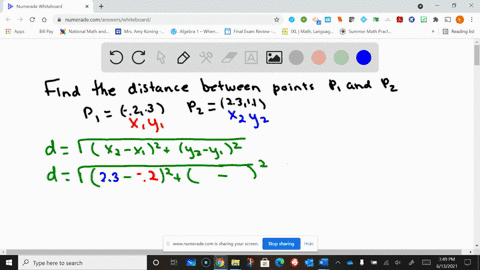 Numerade Whiteboard
numerade.com/answers/whiteboard/
Apps
Bill Rights
National Math and...
Amy Koning -...
Algebra 1 - Whem...
Final Exam Review -...
IXL | Math, Languag...
Summer Math Pract...
Reading list
Find the distance between points P1 and P2
P1 = (-.2, .3) P2 = (2.3, 1.1)
x1 y1 x2 y2
d = √(x2 - x1)² + (y2 - y1)²
d = √(2.3 - -.2)² + ( - )²
www.numerade.com is sharing your screen.
Stop sharing
Hide
Type here to search
3:49 PM
6/13/2021